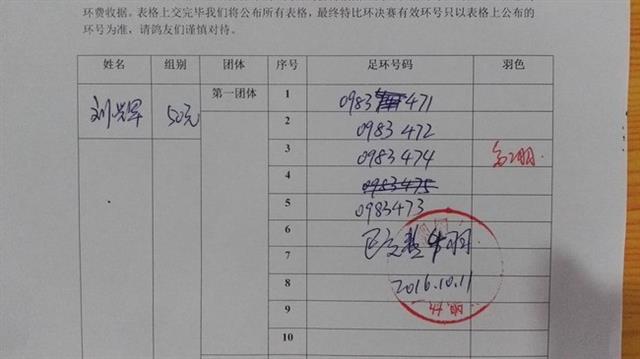 环费收据。表格上交完毕我们将公布所有表格，最终特比环决赛有效环号只以表格上公布的
环号为准，请鸽友们谨慎对待。
姓名 组别 团体 序号 足环号码 羽色
刘兴军 50元 第一团体 1 0983 471
2 0983 472
3 0983 474
4 0983475
5 0983473
6
7
8 2016.10.11
9
10